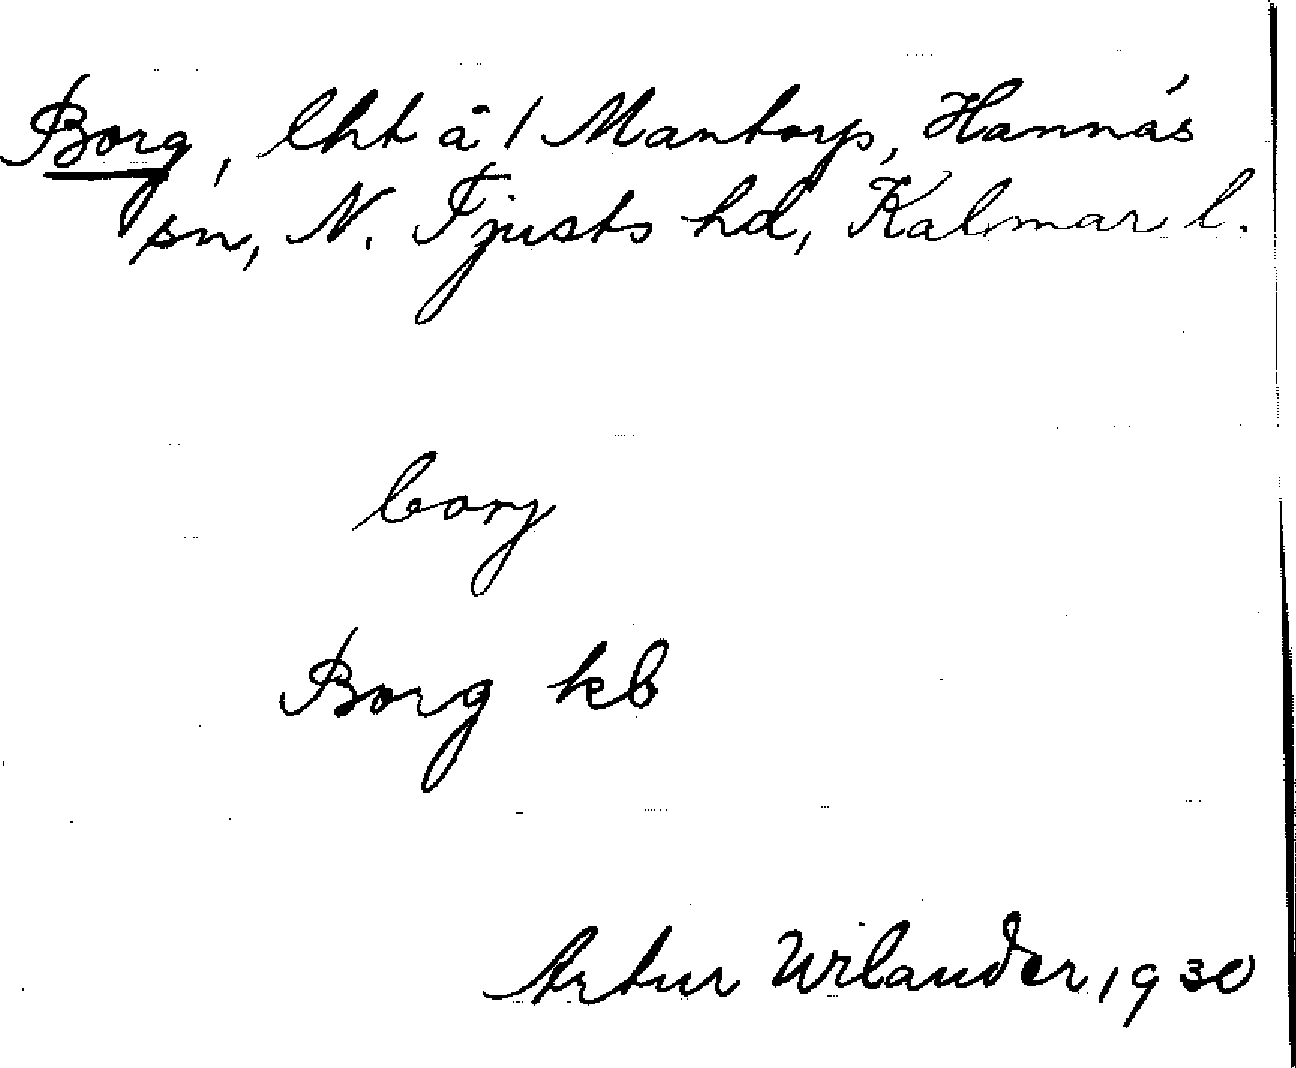 Borg, lht å 1 Mantorp, Hannäs
sn, N. Tjusts hd, Kalmar l.
borj
Borg kb
Artur Wilander, 1930